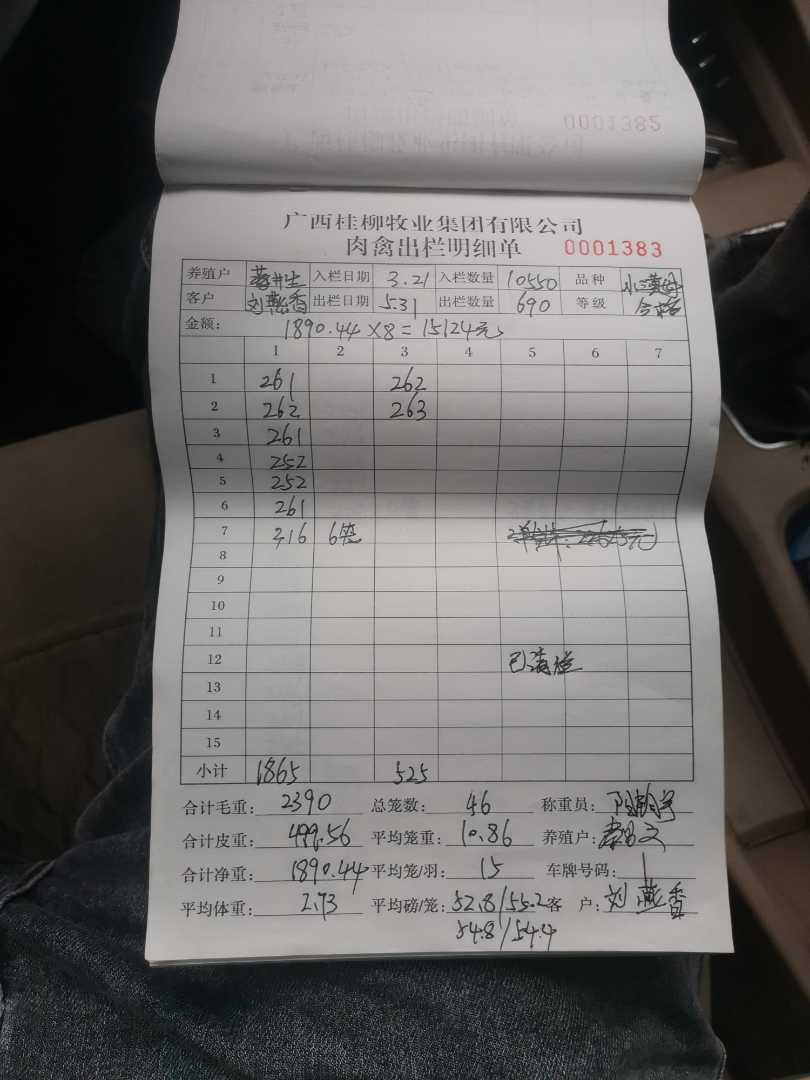 0001382
广西桂柳牧业集团有限公司
肉禽出栏明细单 0001383
养殖户 入栏日期 3.21 入栏数量 10550 品种
客户 刘燕香 出栏日期 5.31 出栏数量 690 等级 合格
金额: 1890.44×8=15124元
1 2 3 4 5 6 7
1 261 262
2 262 263
3 261
4 252
5 252
6 261
7 316 6笼
8
9
10
11
12 已清栏
13
14
15
小计 1865 525
合计毛重: 2390 总笼数: 46 称重员:
合计皮重: 499.56 平均笼重: 10.86 养殖户:
合计净重: 1890.44 平均笼/羽: 15 车牌号码:
平均体重: 2.73 平均磅/笼: 52.8/55.2 客户: 刘燕香
54.8/54.4